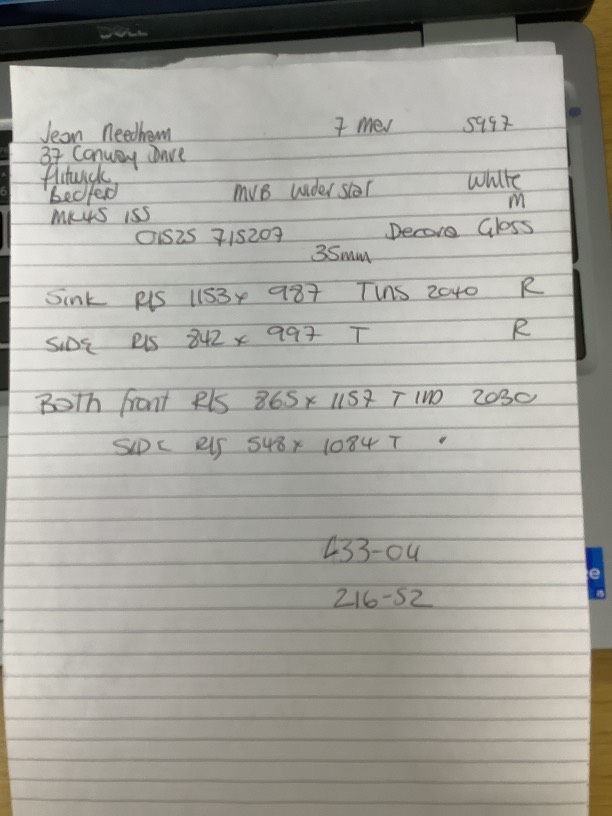 DELL
Jean Needham 7 Mar 5997
37 Conway Drive
Flitwick
Bedford MVB under stair White
MK45 1SS M
01525 715207 Decora Gloss
35mm
Sink R/S 1153 x 987 T 2040 R
SIDE R/S 842 x 997 T R
Both front R/S 865 x 1157 T 2030
SIDE R/S 548 x 1084 T
433-04
216-52